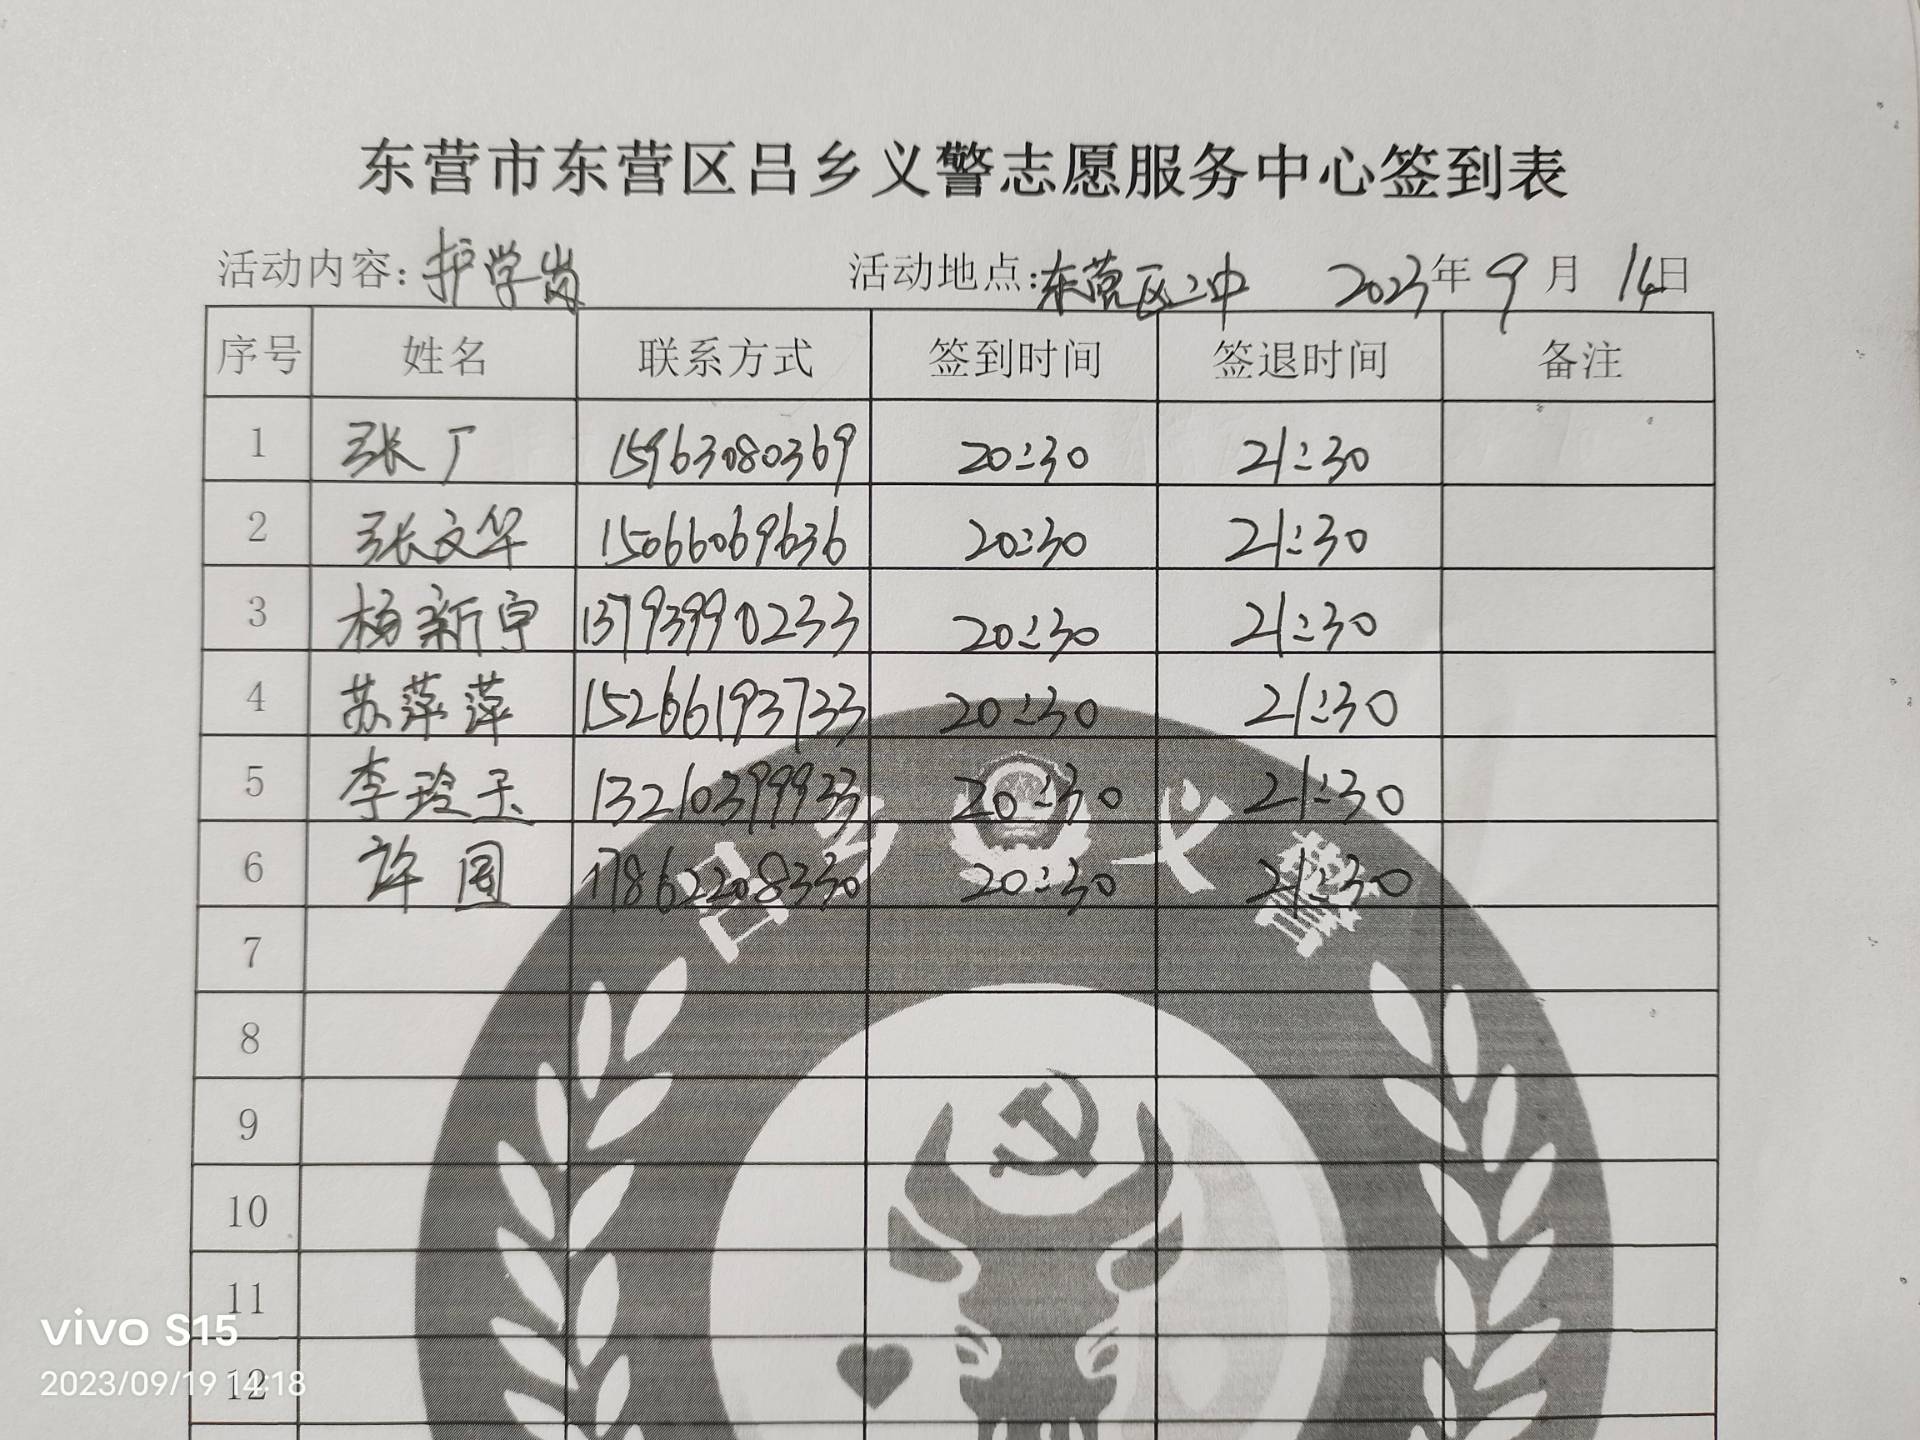 东营市东营区吕乡义警志愿服务中心签到表
活动内容：护学岗 活动地点：东营区二中 2023年9月14日
序号 姓名 联系方式 签到时间 签退时间 备注
1 张广 15963080369 20:30 21:30
2 张文华 15066069636 20:30 21:30
3 杨新宇 13793990233 20:30 21:30
4 苏萍萍 15266193733 20:30 21:30
5 李玲玉 13210399933 20:30 21:30
6 许国 17862208330 20:30 21:30
7
8
9
10
11
12
吕乡义警
vivo S15
2023/09/19 14:18